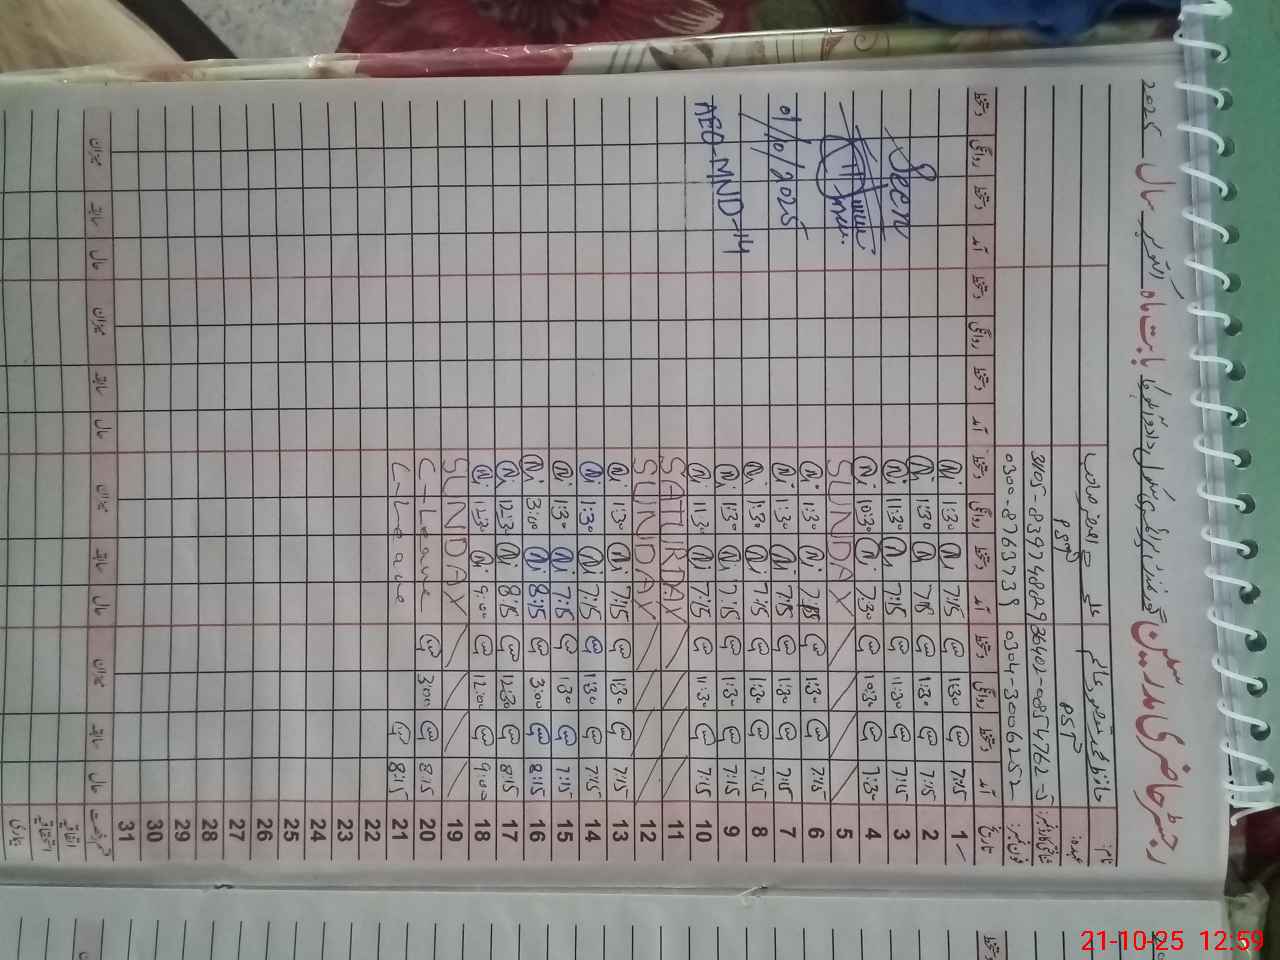 رجسٹر حاضری مدرسین گورنمنٹ بابت ماہ اکتوبر سال 2025
نام: حافظ محمد علی
عہدہ: PST PST
شناختی کارڈ نمبر: 36402-0854762-5 31105-8397488-29
فون نمبر: 0304-3006252 0300-8763739
تاریخ آمد دستخط روانگی دستخط آمد دستخط روانگی دستخط آمد دستخط روانگی دستخط آمد دستخط روانگی دستخط
1 7:15 1:30 7:15 1:30
2 7:15 1:30 7:15 1:30
3 7:15 11:30 7:15 11:30
4 7:30 10:30 7:30 10:30
5 SUNDAY
6 7:15 1:30 7:15 1:30
7 7:15 1:30 7:15 1:30
8 7:15 1:30 7:15 1:30
9 7:15 1:30 7:15 1:30
10 7:15 11:30 7:15 11:30
11 SATURDAY
12 SUNDAY
13 7:15 1:30 7:15 1:30
14 7:15 1:30 7:15 1:30
15 7:15 1:30 7:15 1:30
16 8:15 3:00 8:15 3:00
17 8:15 12:30 8:15 12:30
18 9:00 12:00 9:00 12:30
19 SUNDAY
20 8:15 3:00 C-Leave
21 8:15 C-Leave
22
23
24
25
26
27
28
29
30
31
Seen
01/10/2025
AEO-MND-14
قسم رخصت حال سابقہ میزان حال سابقہ میزان حال سابقہ میزان حال سابقہ میزان
اتفاقیہ
استحقاقیہ
بیماری
21-10-25 12:59